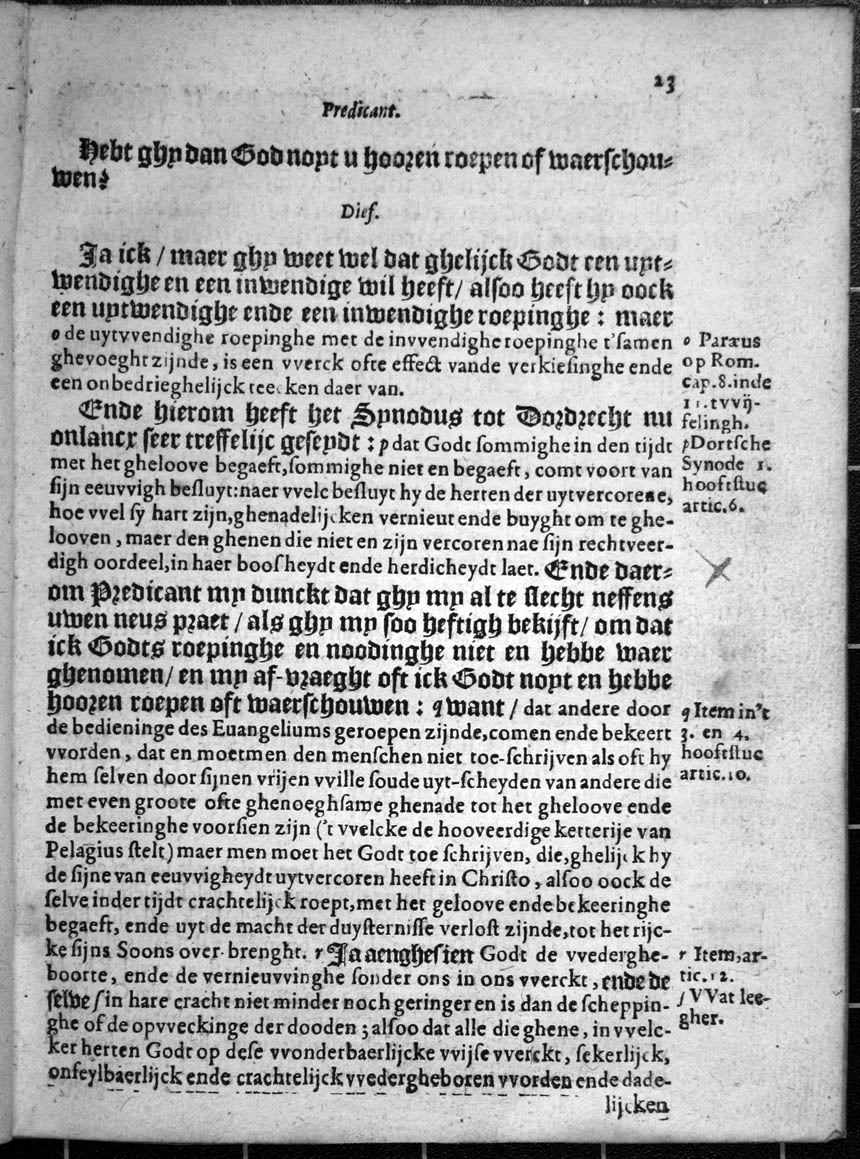 23
Predicant.
Hebt ghy dan God noyt u hooren roepen of waerschou-
wen?
Dief.
Ja ick / maer ghy weet wel dat ghelijck Godt een uyt-
wendighe en een inwendige wil heeft / alsoo heeft hy oock
een uytwendighe ende een inwendighe roepinghe : maer
o de uytvvendighe roepinghe met de invvendighe roepinghe t'samen
ghevoeght zijnde, is een vverck ofte effect vande verkiesinghe ende
een onbedrieghelijck teecken daer van.
o Paræus
op Rom.
cap.8.inde
11.tvvij-
felingh.
Ende hierom heeft het Synodus tot Dordrecht nu
onlancx seer treffelijc geseydt : p dat Godt sommighe in den tijdt
met het gheloove begaeft, sommighe niet en begaeft, comt voort van
sijn eeuvvigh besluyt: naer vvelc besluyt hy de herten der uytvercorene,
hoe vvel sy hart zijn, ghenadelijcken vernieut ende buyght om te ghe-
looven, maer den ghenen die niet en zijn vercoren nae sijn rechtveer-
digh oordeel, in haer boosheydt ende herdicheydt laet. Ende daer-
om Predicant my dunckt dat ghy my al te slecht neffens
uwen neus praet / als ghy my soo heftigh bekijft / om dat
ick Godts roepinghe en noodinghe niet en hebbe waer
ghenomen / en my af-vraeght oft ick Godt noyt en hebbe
hooren roepen oft waerschouwen : q want / dat andere door
de bedieninge des Euangeliums geroepen zijnde, comen ende bekeert
vvorden, dat en moetmen den menschen niet toe-schrijven als oft hy
hem selven door sijnen vrijen vville soude uyt-scheyden van andere die
met even groote ofte ghenoeghsame ghenade tot het gheloove ende
de bekeeringhe voorsien zijn ('t vvelcke de hooveerdige ketterije van
Pelagius stelt) maer men moet het Godt toe schrijven, die, ghelijck hy
de sijne van eeuvvigheydt uytvercoren heeft in Christo, alsoo oock de
selve inder tijdt crachtelijck roept, met het geloove ende bekeeringhe
begaeft, ende uyt de macht der duysternisse verlost zijnde, tot het rijc-
ke sijns Soons over-brenght. r Ja aenghesien Godt de vvederghe-
boorte, ende de vernieuvvinghe sonder ons in ons vverckt, ende de
selve s in hare cracht niet minder noch geringer en is dan de scheppin-
ghe of de opvveckinge der dooden ; alsoo dat alle die ghene, in vvelc-
ker herten Godt op dese vvonderbaerlijcke vvijse vverckt, sekerlijck,
onfeylbaerlijck ende crachtelijck vvedergheboren vvorden ende dade-
lijcken
p Dortsche
Synode 1.
hooftstuc
artic.6.
q Item in't
3. en 4.
hooftstuc
artic.10.
r Item, ar-
tic.12.
s VVat lee-
gher.